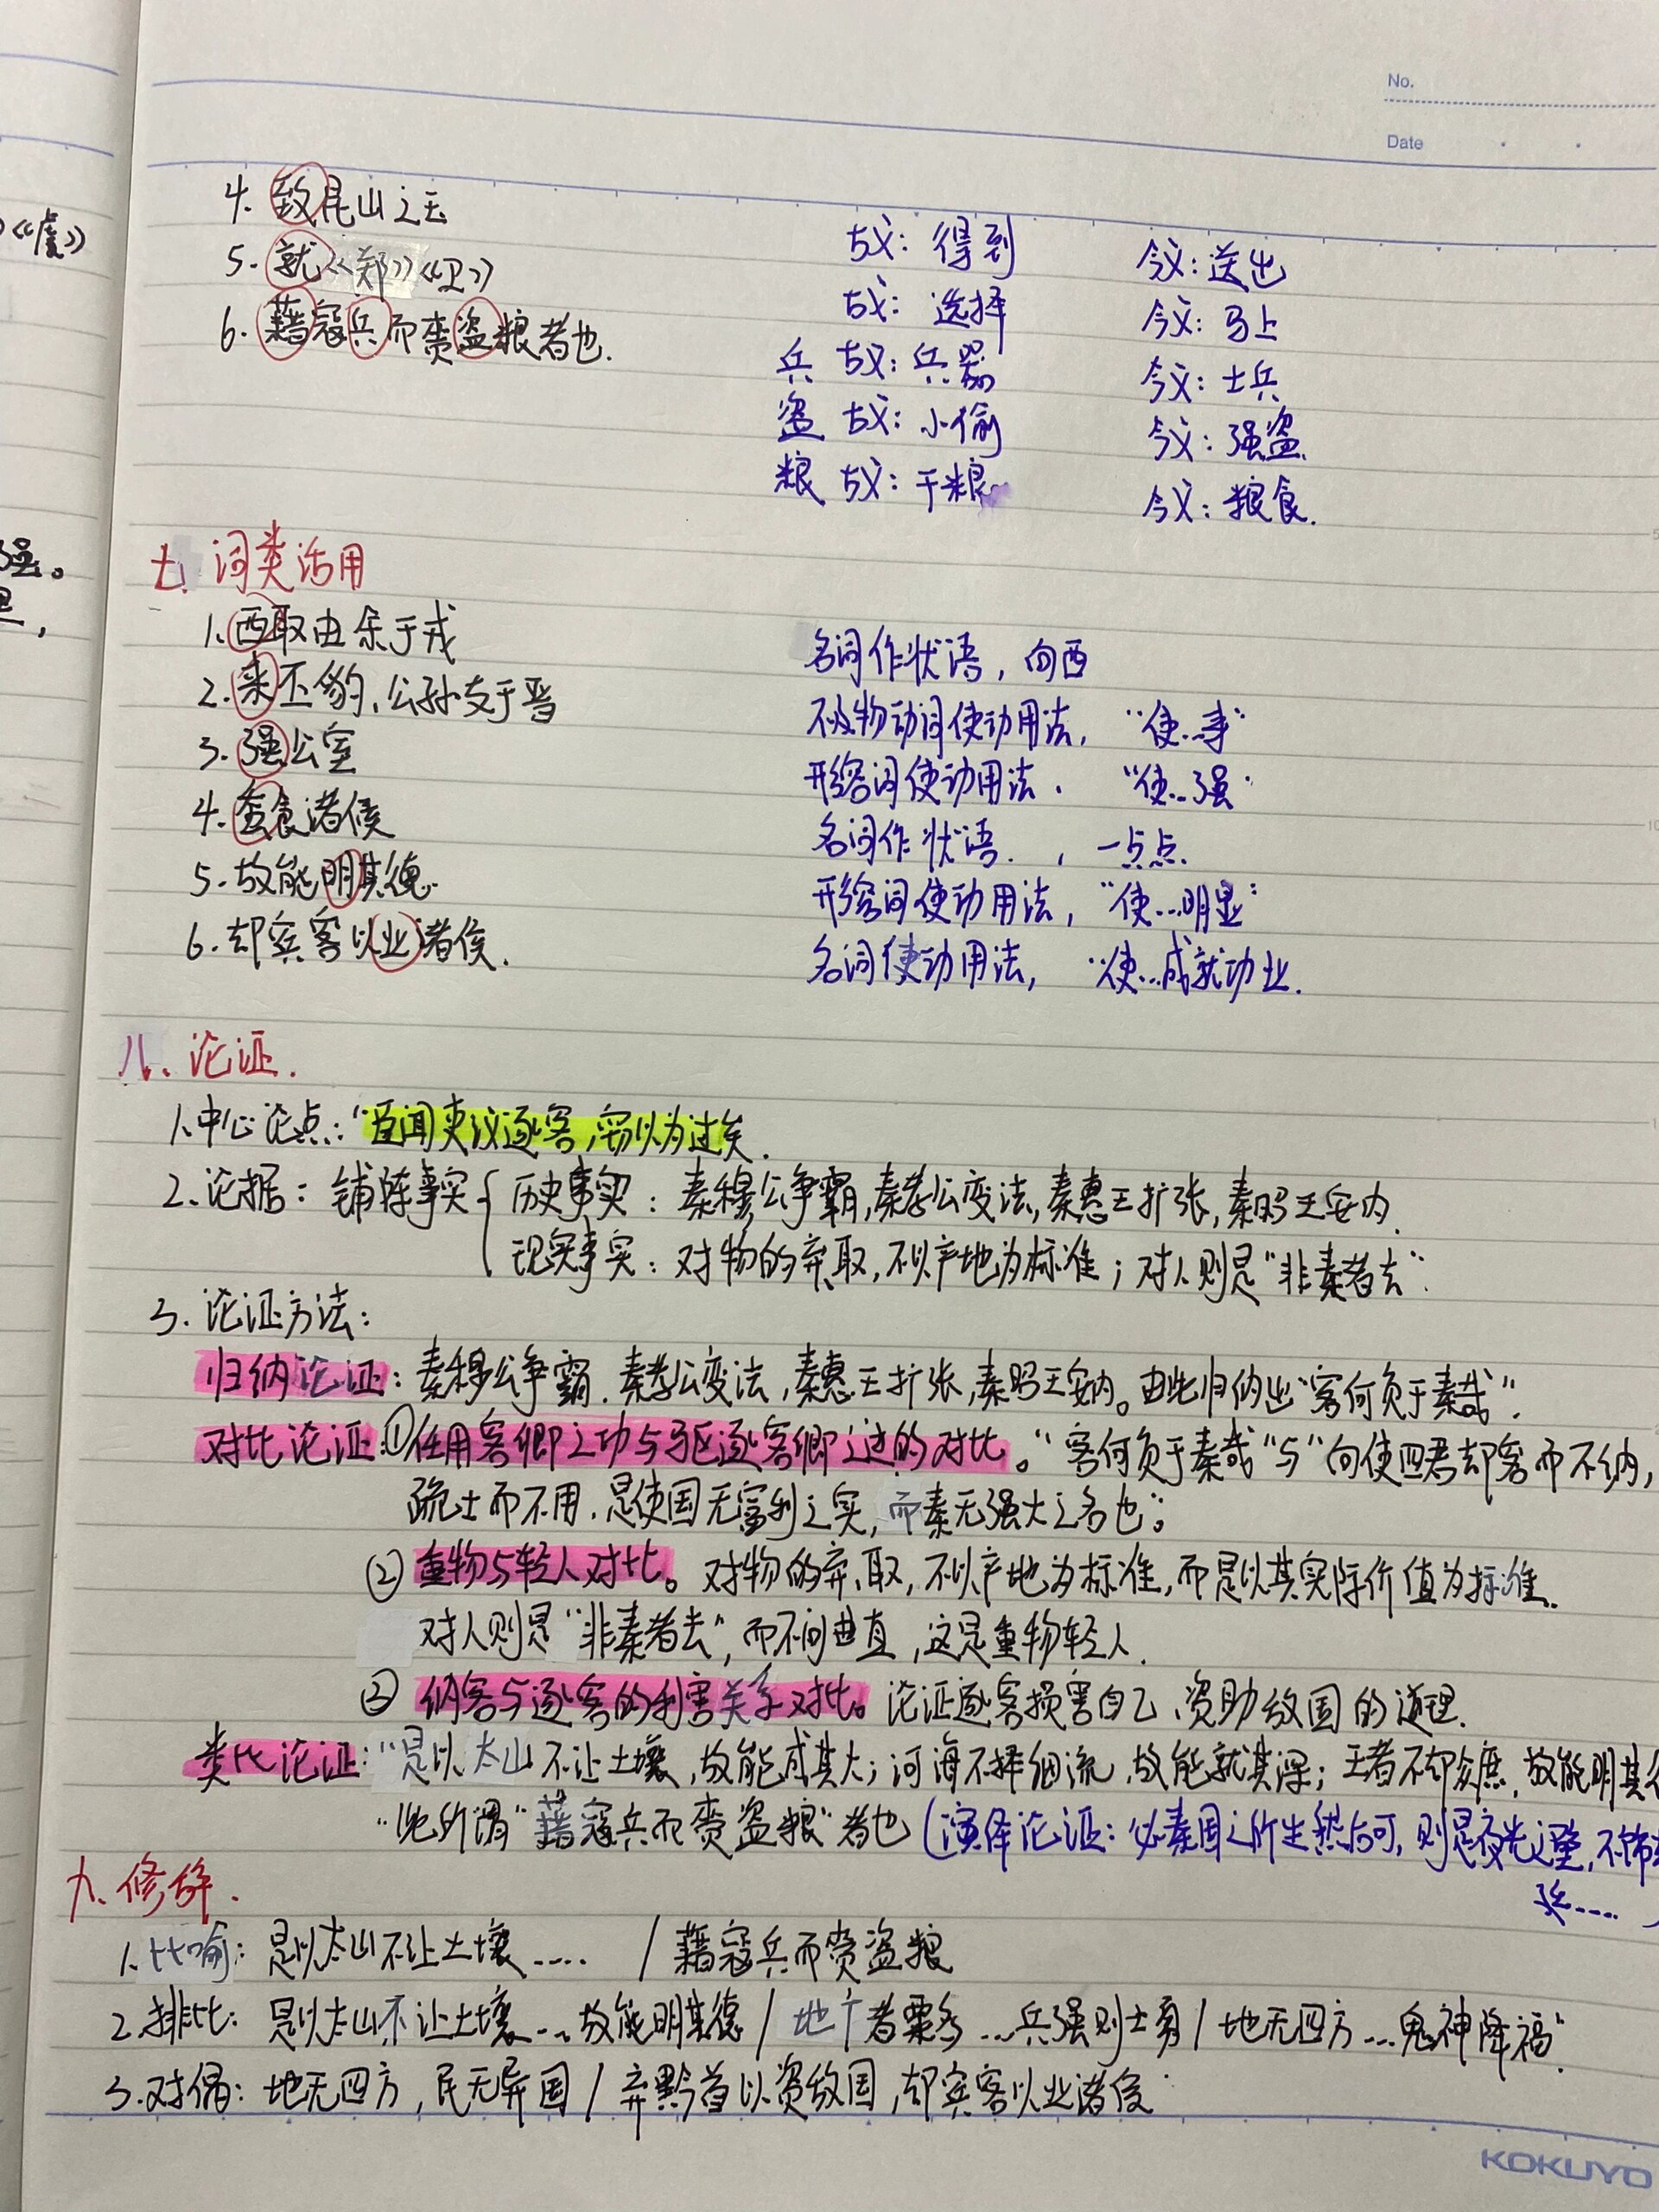 No.
Date
《虞》
强。
4. 致昆山之玉 古义：得到 今义：送出
5. 就《郑》《卫》 古义：选择 今义：马上
6. 藉寇兵而赍盗粮者也. 兵 古义：兵器 今义：士兵
盗 古义：小偷 今义：强盗.
粮 古义：干粮 今义：粮食.
七. 词类活用
1. 西取由余于戎 名词作状语，向西
2. 来丕豹、公孙支于晋 不及物动词使动用法，“使…来”
3. 强公室 形容词使动用法. “使…强”
4. 蚕食诸侯 名词作状语. ，一点点.
5. 故能明其德. 形容词使动用法，“使…明显”
6. 却宾客以业诸侯. 名词使动用法，“使…成就功业.
八. 论证.
1. 中心论点：“臣闻吏议逐客，窃以为过矣.
2. 论据：铺陈事实{历史事实：秦穆公争霸，秦孝公变法，秦惠王扩张，秦昭王安内.
现实事实：对物的弃取，不以产地为标准；对人则是“非秦者去”.
3. 论证方法：
归纳论证：秦穆公争霸. 秦孝公变法，秦惠王扩张，秦昭王安内。由此归纳出“客何负于秦哉”.
对比论证：①任用客卿之功与驱逐客卿之过的对比。“客何负于秦哉”与“向使四君却客而不纳，
疏士而不用，是使国无富利之实，而秦无强大之名也”。
② 重物与轻人对比。对物的弃、取，不以产地为标准，而是以其实际价值为标准.
对人则是“非秦者去”，而不问曲直，这是重物轻人.
③ 纳客与逐客的利害关系对比。论证逐客损害自己、资助敌国的道理.
类比论证：“是以太山不让土壤，故能成其大；河海不择细流，故能就其深；王者不却众庶，故能明其
“此所谓“藉寇兵而赍盗粮”者也（演绎论证：必秦国之所生然后可，则是夜光之璧，不饰
廷……）
九. 修辞.
1. 比喻：是以太山不让土壤…… / 藉寇兵而赍盗粮
2. 排比：是以太山不让土壤…，故能明其德 / 地广者粟多…兵强则士勇 / 地无四方…鬼神降福”.
3. 对偶：地无四方，民无异国 / 弃黔首以资敌国，却宾客以业诸侯.
KOKUYO